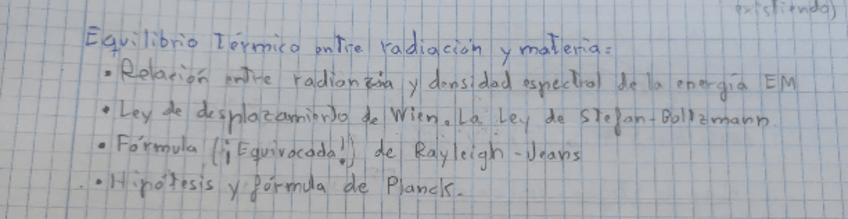 existiendo)
Equilibrio Térmico entre radiación y materia:
• Relación entre radianzia y densidad espectral de la energía EM
• Ley de desplazamiento de Wien. La Ley de Stefan-Boltzmann
• Fórmula (¡Equivocada!) de Rayleigh-Jeans
• Hipótesis y fórmula de Planck.